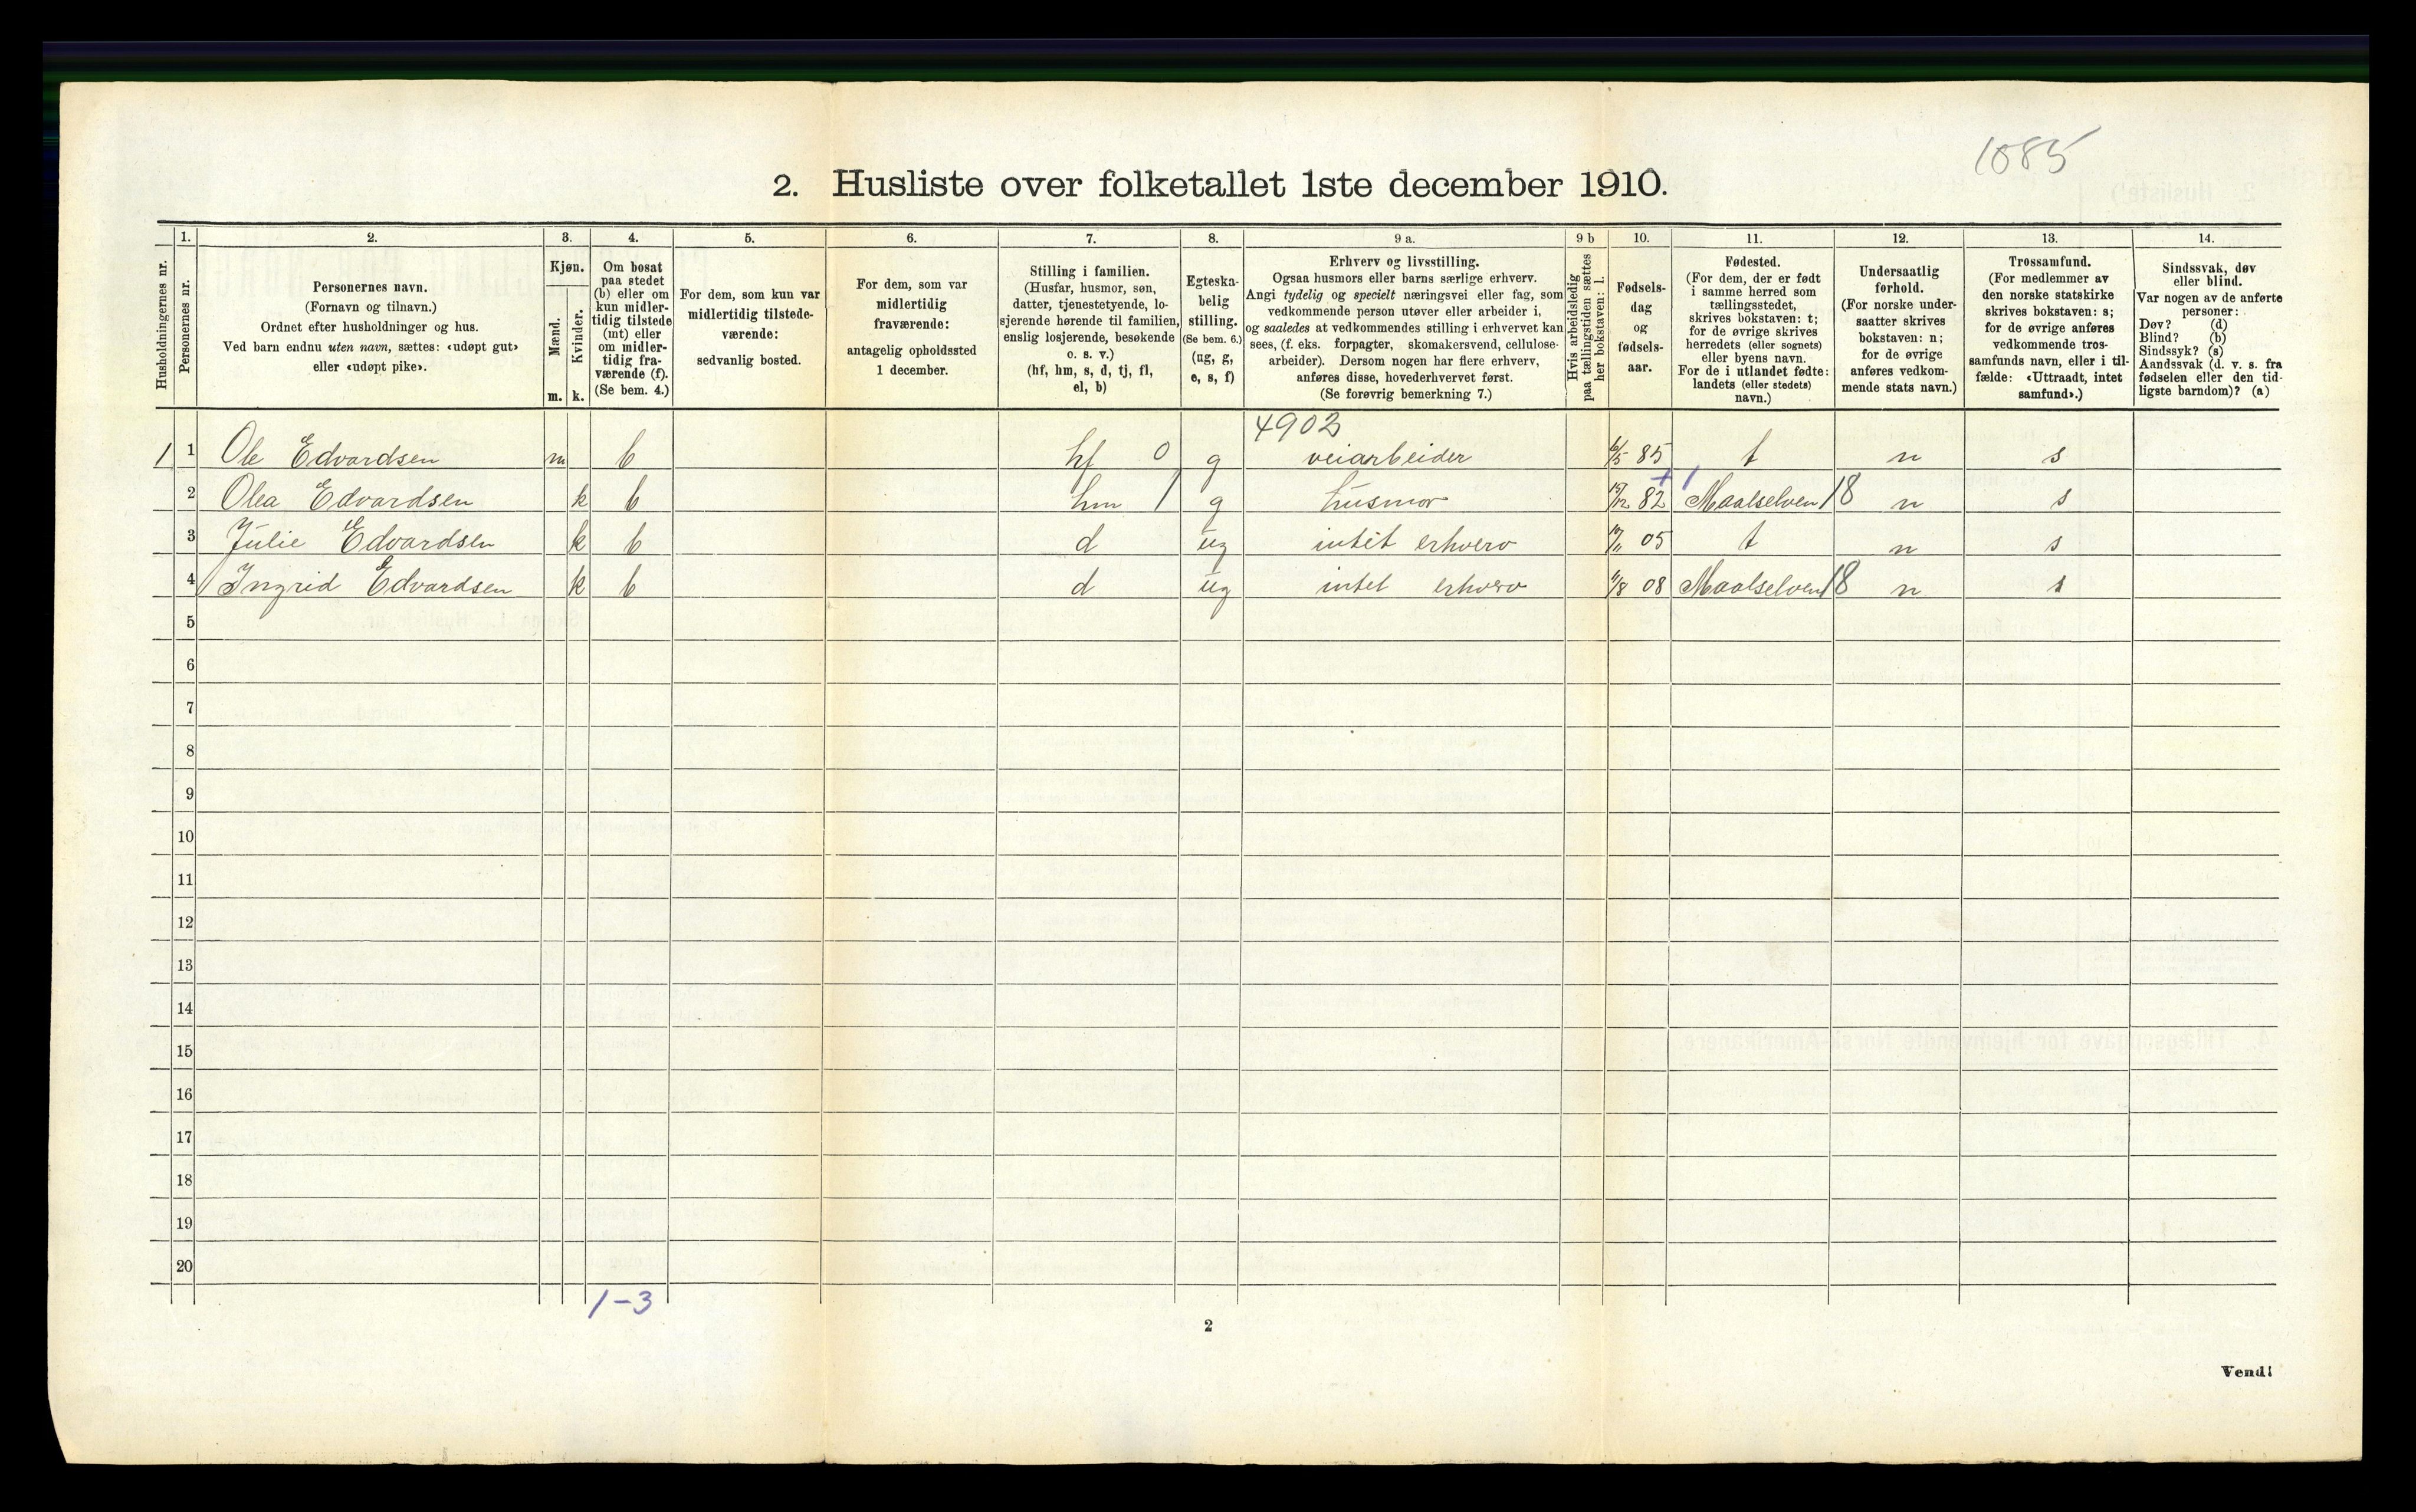 1085
2. Husliste over folketallet 1ste december 1910.
Husholdningernes nr.
1.
Personernes nr.
2.
Personernes navn.
(Fornavn og tilnavn.)
Ordnet efter husholdninger og hus.
Ved barn endnu uten navn, sættes: «udøpt gut»
eller «udøpt pike».
3.
Kjøn.
Mænd.
Kvinder.
m. k.
4.
Om bosat
paa stedet
(b) eller om
kun midler-
tidig tilstede
(mt) eller
om midler-
tidig fra-
værende (f).
(Se bem. 4.)
5.
For dem, som kun var
midlertidig tilstede-
værende:
sedvanlig bosted.
6.
For dem, som var
midlertidig
fraværende:
antagelig opholdssted
1 december.
7.
Stilling i familien.
(Husfar, husmor, søn,
datter, tjenestetyende, lo-
sjerende hørende til familien,
enslig losjerende, besøkende
o. s. v.)
(hf, hm, s, d, tj, fl,
el, b)
8.
Egteska-
belig
stilling.
(Se bem. 6.)
(ug, g,
e, s, f)
9 a.
Erhverv og livsstilling.
Ogsaa husmors eller barns særlige erhverv.
Angi tydelig og specielt næringsvei eller fag, som
vedkommende person utøver eller arbeider i,
og saaledes at vedkommendes stilling i erhvervet kan
sees, (f. eks. forpagter, skomakersvend, cellulose-
arbeider). Dersom nogen har flere erhverv,
anføres disse, hovederhvervet først.
(Se forøvrig bemerkning 7.)
9 b
Hvis arbeidsledig
paa tællingstiden sættes
her bokstaven: l.
10.
Fødsels-
dag
og
fødsels-
aar.
11.
Fødested.
(For dem, der er født
i samme herred som
tællingsstedet,
skrives bokstaven: t;
for de øvrige skrives
herredets (eller sognets)
eller byens navn.
For de i utlandet fødte:
landets (eller stedets)
navn.)
12.
Undersaatlig
forhold.
(For norske under-
saatter skrives
bokstaven: n;
for de øvrige
anføres vedkom-
mende stats navn.)
13.
Trossamfund.
(For medlemmer av
den norske statskirke
skrives bokstaven: s;
for de øvrige anføres
vedkommende tros-
samfunds navn, eller i til-
fælde: «Uttraadt, intet
samfund».)
14.
Sindssvak, døv
eller blind.
Var nogen av de anførte
personer:
Døv? (d)
Blind? (b)
Sindssyk? (s)
Aandssvak (d. v. s. fra
fødselen eller den tid-
ligste barndom)? (a)
4902
1 1 Ole Edvardsen m b hf 0 g veiarbeider 6/5 85 t n s
2 Olea Edvardsen k b hm 1 g husmor 15/12 82 Maalselven 18 n s
3 Julie Edvardsen k b d ug intet erhverv 05 t n s
4 Ingrid Edvardsen k b d ug intet erhverv 08 Maalselven 18 n s
5
6
7
8
9
10
11
12
13
14
15
16
17
18
19
20
1-3
2
Vend!